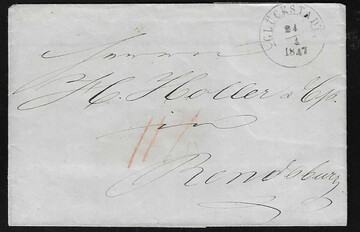 GLÜCKSTADT
24
4
1847
Herren
H. Holler & Cp.
in
Rendsburg